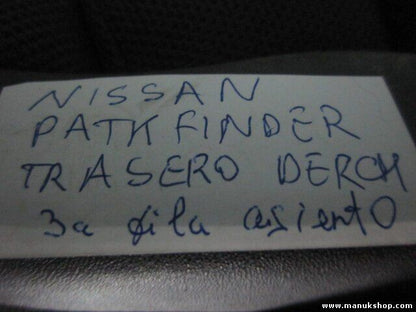 NISSAN
PATKFINDER
TRASERO DERCH
3a fila asiento
www.manukshop.com